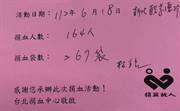 活動日期：112年6月18日
捐血人數：164人
捐血袋數：267袋
感謝您承辦此次捐血活動！
台北捐血中心敬啟
捐血救人